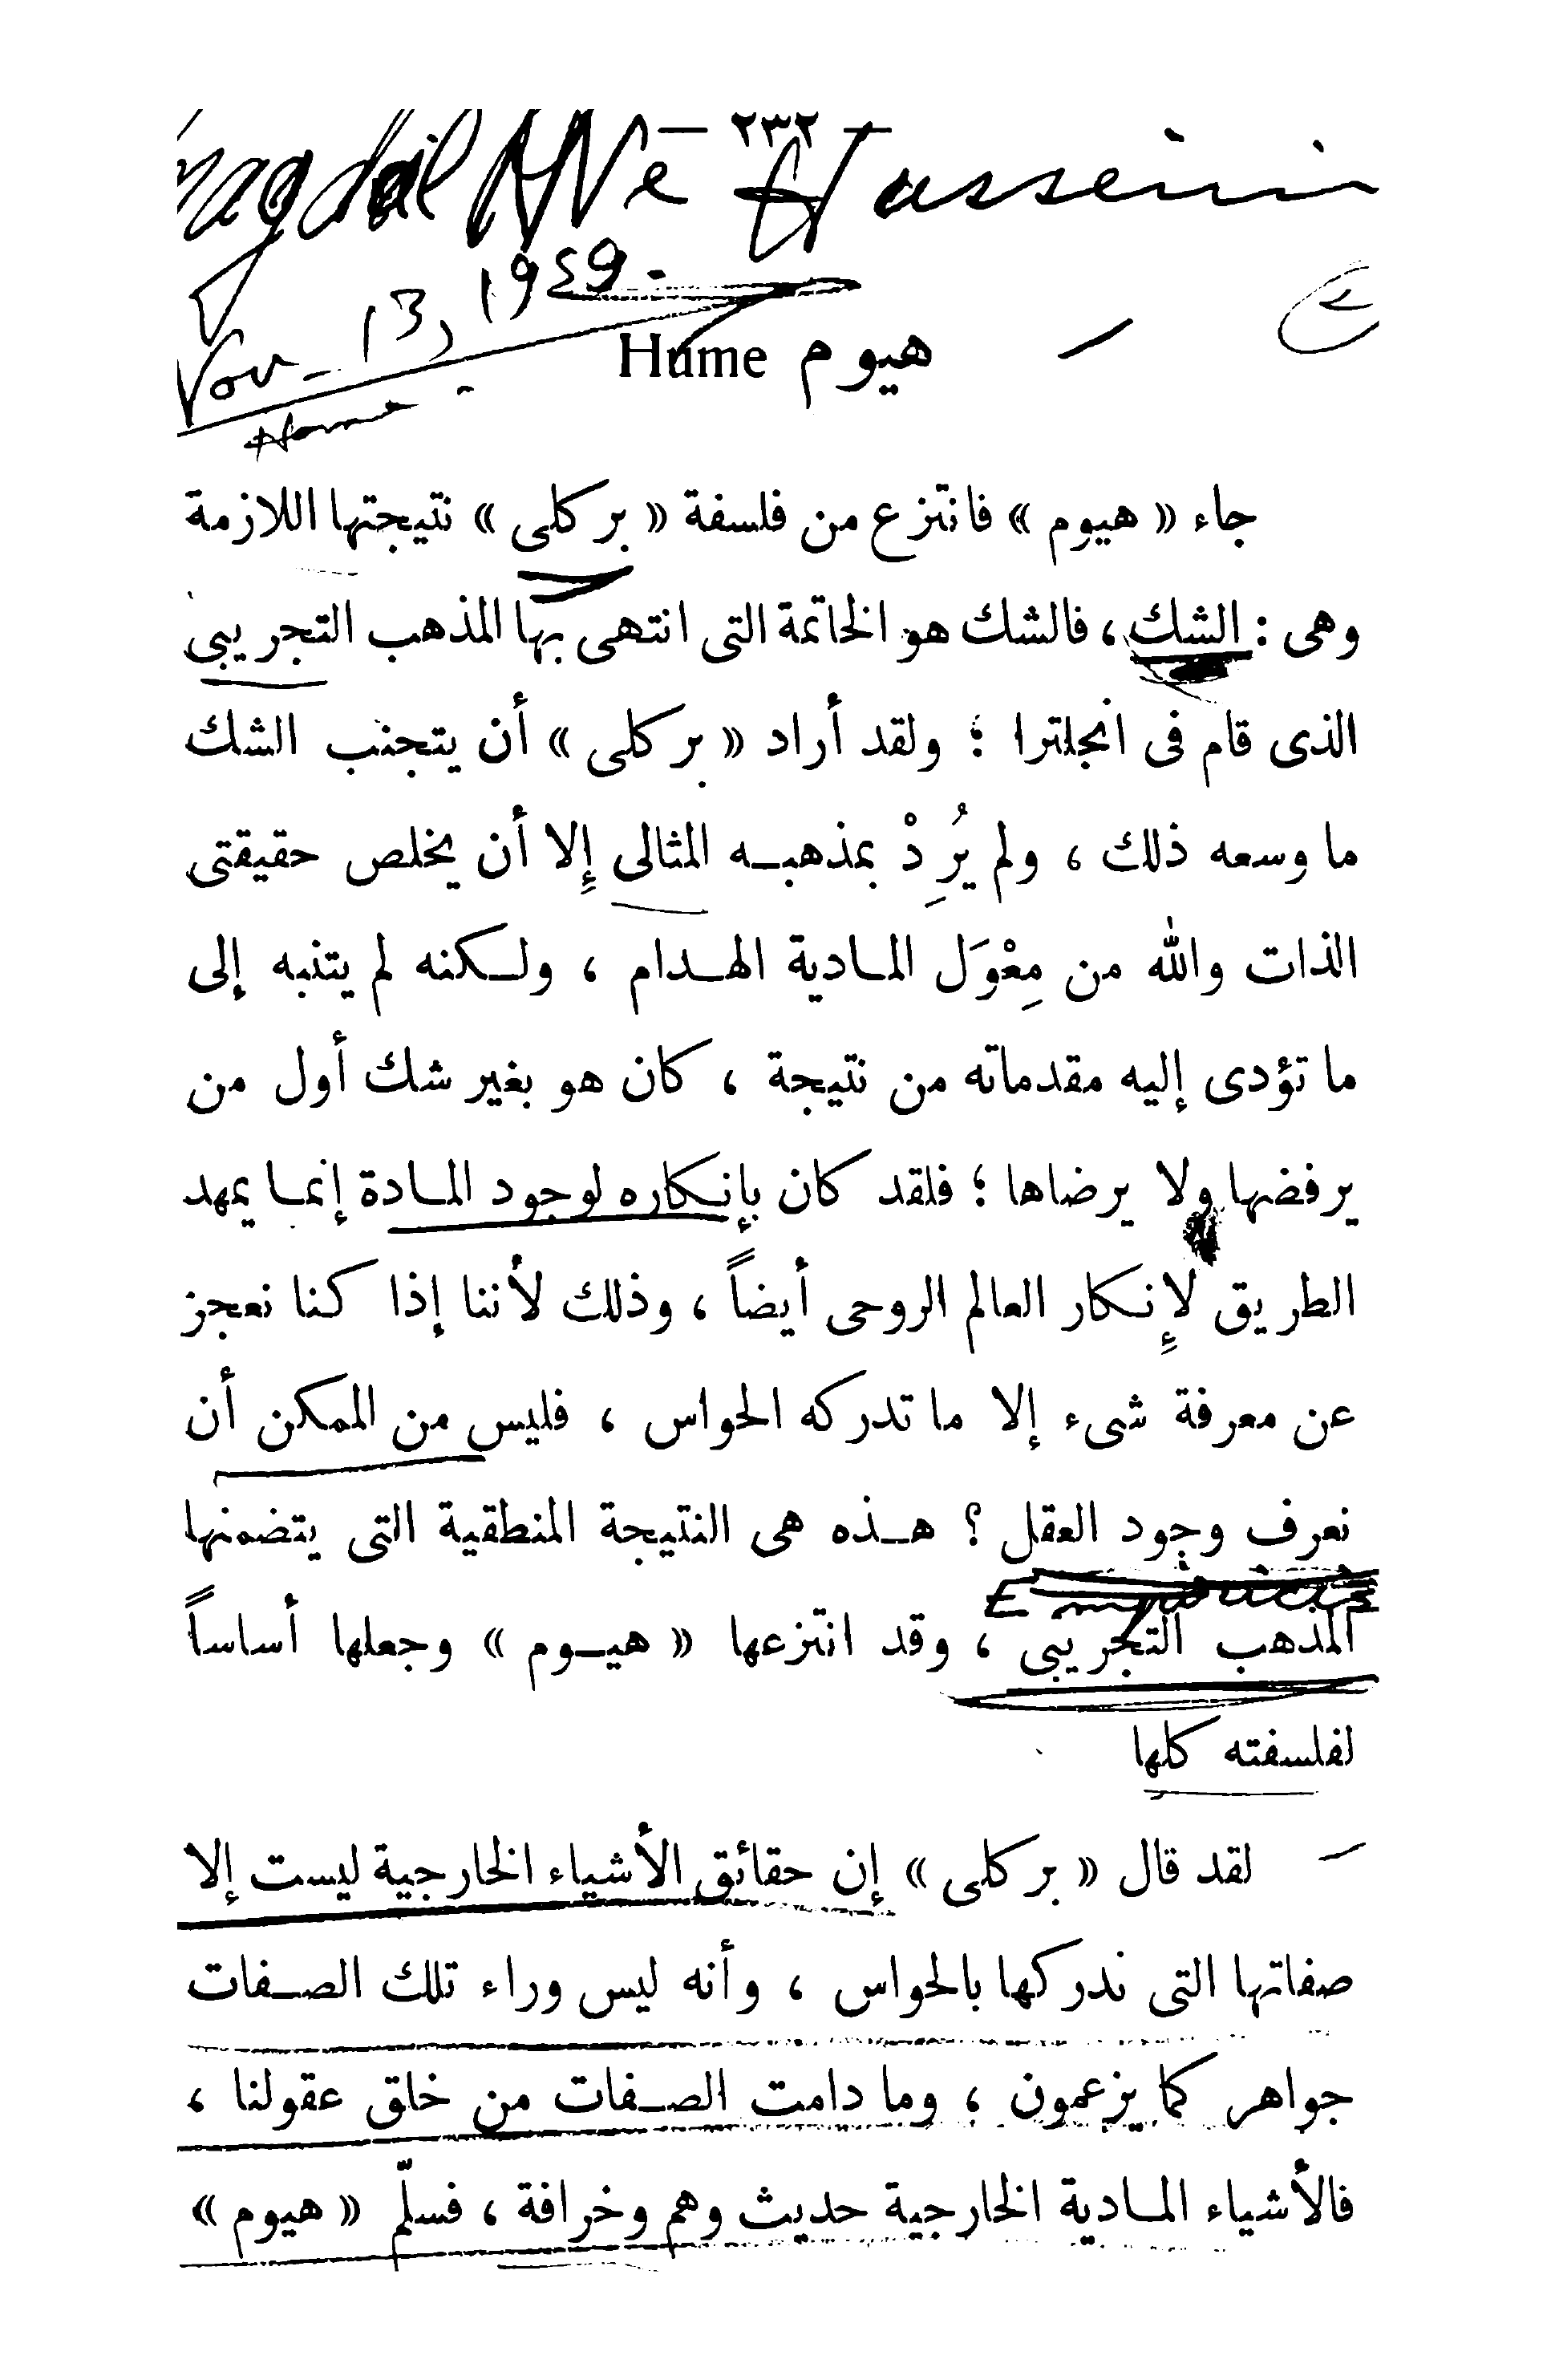 — ٢٣٢ —
Hassein
Nov - 13, 1949.
هيوم Hume
Home
جاء « هيوم » فانتزع من فلسفة « بركلى » نتيجتها اللازمة
وهى : الشك ، فالشك هو الخاتمة التى انتهى بها المذهب التجريبى
الذى قام فى انجلترا ؛ ولقد أراد « بركلى » أن يتجنب الشك
ما وسعه ذلك ، ولم يُرِدْ بمذهبـه المثالى إِلا أن يخلص حقيقتى
الذات والله من مِعْوَل المـادية الهـدام ، ولـكنه لم يتنبه إلى
ما تؤدى إليه مقدماته من نتيجة ، كان هو بغير شك أول من
يرفضها ولا يرضاها ؛ فلقد كان بإنـكاره لوجود المـادة إنمـا يمهد
الطريق لإِنـكار العالم الروحى أيضاً ، وذلك لأننا إذا كنا نعجز
عن معرفة شىء إلا ما تدركه الحواس ، فليس من الممكن أن
نعرف وجود العقل ؟ هـذه هى النتيجة المنطقية التى يتضمنها
المذهب التجريبى ، وقد انتزعها « هيـوم » وجعلها أساساً
لفلسفته كلها
لقد قال « بركلى » إن حقائق الأشياء الخارجية ليست إلا
صفاتها التى ندركها بالحواس ، وأنه ليس وراء تلك الصـفات
جواهر كما يزعمون ، وما دامت الصـفات من خلق عقولنا ،
فالأشياء المـادية الخارجية حديث وهم وخرافة ، فسلّم « هيوم »